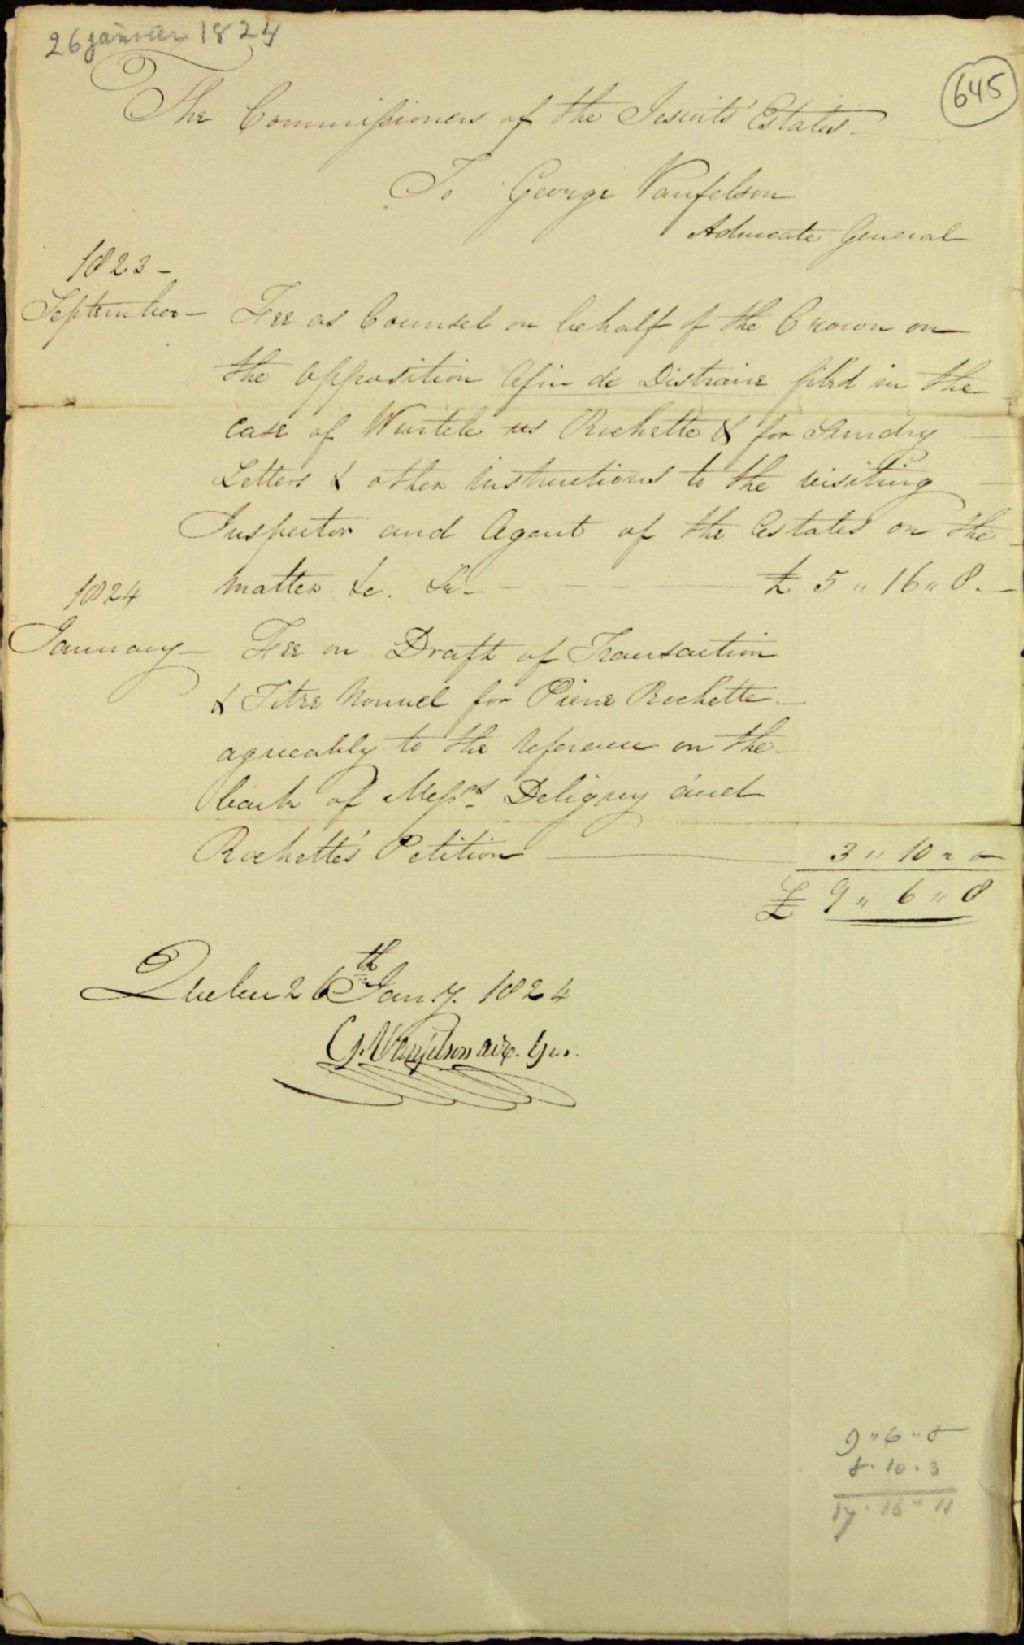 26 janvier 1824
645
The Commissioners of the Jesuits' Estates
To George Vanfelson
Advocate General
1823 -
September - Fee as Counsel on behalf of the Crown on
the opposition Afin de Distraire filed in the
case of Wurtele vs Rochette & for Sundry
Letters & other instructions to the visiting
Inspector and Agent of the Estates on the
matter &c. &c - £ 5 " 16 " 8. -
1824
January - Fee on Draft of Transaction
& Titre Nouvel for Pierre Rochette -
agreeably to the reference on the
back of Messrs. Deligny and
Rochette's Petition 3 " 10 " 0
£ 9 " 6 " 8
Quebec 26th Jany. 1824
G. Vanfelson adv. Gen.
9 " 6 " 8
8 . 10 . 3
17 . 16 " 11